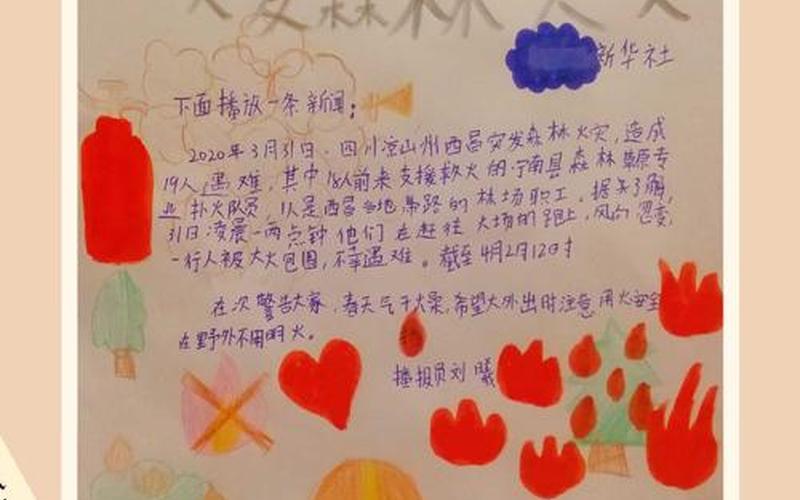 森林
新华社
下面播放一条新闻;
2020年3月31日,四川凉山州西昌突发森林火灾,造成
19人遇难,其中18人前来支援救火的宁南县森林草原专
业扑火队员,1人是西昌当地带路的林场职工。据了解,
31日凌晨一两点钟他们在赶往火场的路上,风向忽变,
一行人被大火包围,不幸遇难。截至4月2日12时
在次警告大家,春天气干火燥,希望大外出时注意用火安全
在野外不用明火。
播报员刘曦